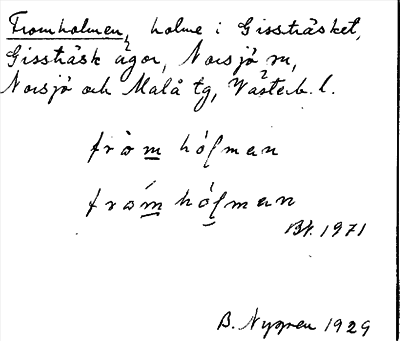 Fromholmen, holme i Gissträsket,
Gissträsk ägor, Norsjö sn,
Norsjö och Malå tg, Västerb. l.
från hólman
främ hólman
Bt. 1971
B. Nygren 1929